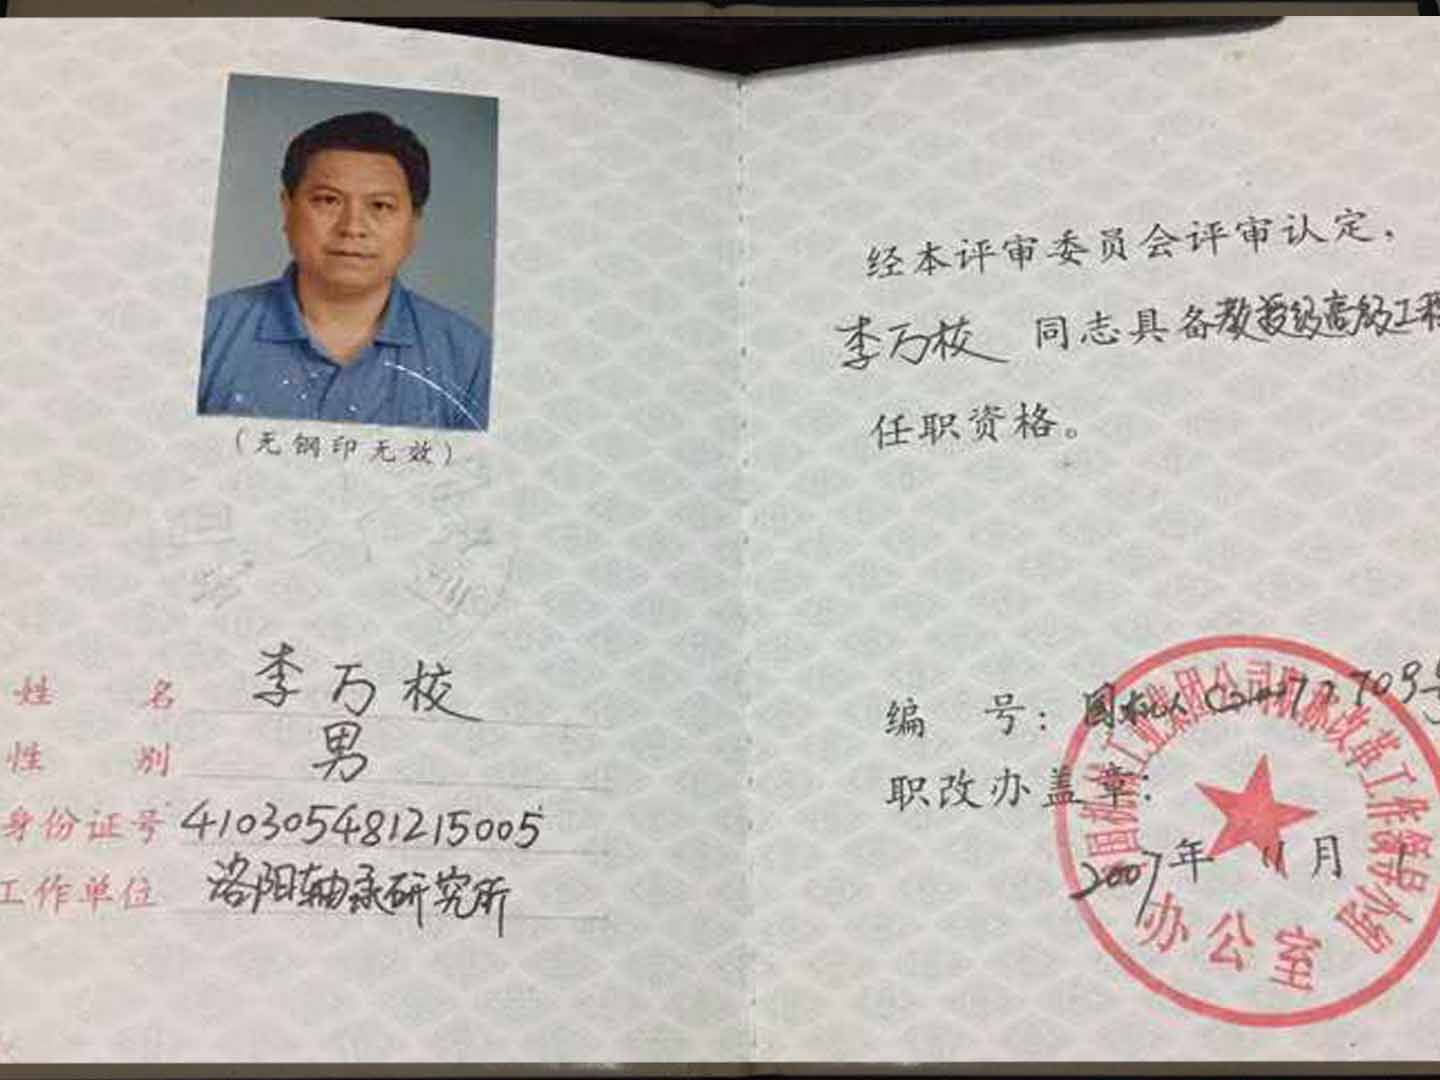 (无钢印无效)
姓 名 李万校
性 别 男
身份证号 410305481215005
工作单位 洛阳轴承研究所
经本评审委员会评审认定，
李万校 同志具备教授级高级工程
任职资格。
编 号：国机人
职改办盖章：
2007年 11月
机械工业集团公司职称改革工作领导小组
办公室